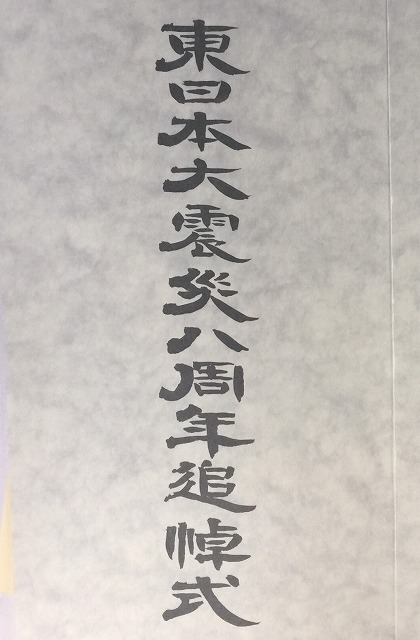 東日本大震災八周年追悼式